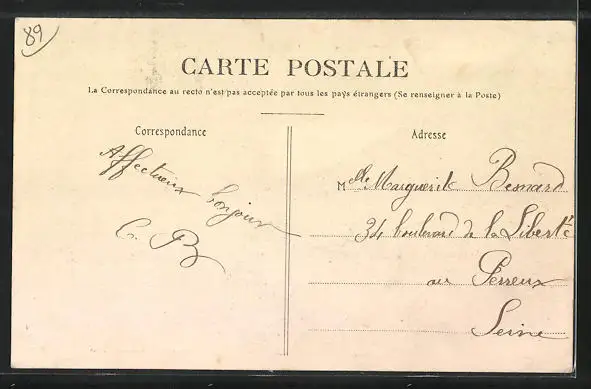 89
CARTE POSTALE
La Correspondance au recto n'est pas acceptée par tous les pays étrangers (Se renseigner à la Poste)
Correspondance
Adresse
Affectueux bonjour
C. B
Mlle Marguerite Besnard
34 boulevard de la Liberté
au Perreux
Seine